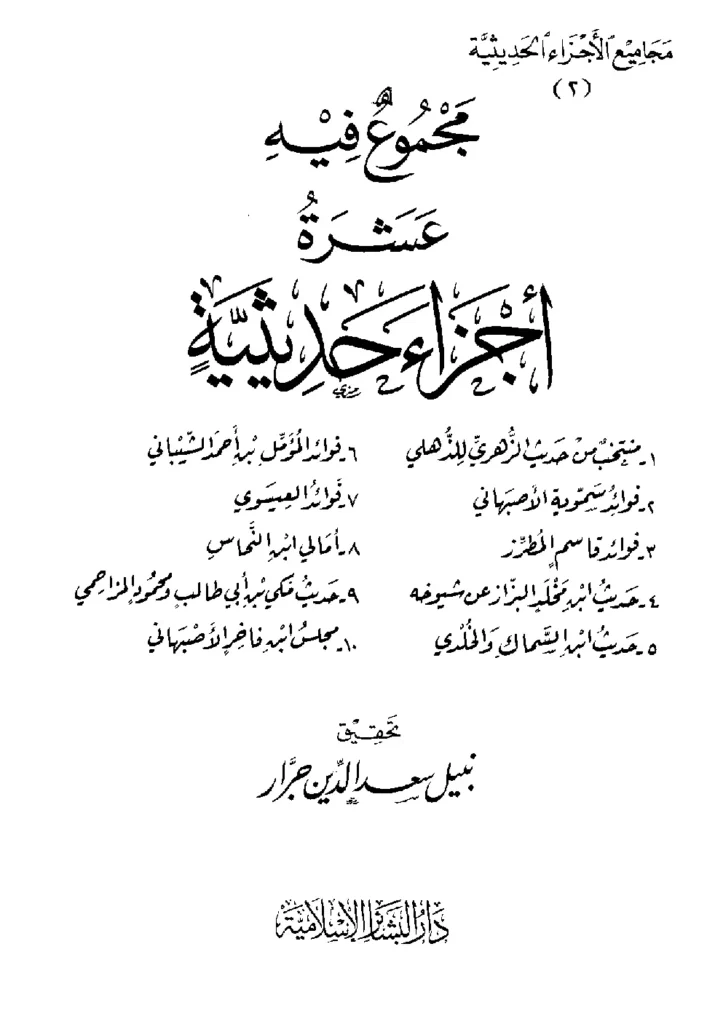 مَجَامِيعُ الأَجْزَاءِ الحَدِيثِيَّة
(٢)
مَجْمُوعٌ فِيهِ
عَشَرَةُ
أَجْزَاءٍ حَدِيثِيَّةٍ
١- منتخبٌ من حديث الزُّهريِّ للذُّهلي
٢- فوائدُ سَمّوية الأصبهاني
٣- فوائد قاسمٍ المُطرِّز
٤- حديثُ ابنِ مَخْلَدٍ البزّاز عن شيوخه
٥- حديثُ ابنِ السَّماكِ وَالخُلْدي
٦- فوائد المُؤمّل بنِ أحمَدَ الشّيْباني
٧- فَوائدُ العِيسَوي
٨- أمالي ابنِ النَّحاسِ
٩- حَديثُ مَكي بنِ أبي طالبٍ ومحمُودٍ المزاحمي
١٠- مجلسُ ابْنِ فاخرٍ الأصْبَهاني
تحقِيق
نَبيل سَعد الدِّين جَرَّار
دَارُ البَشَائِرِ الإِسْلَامِيَّة